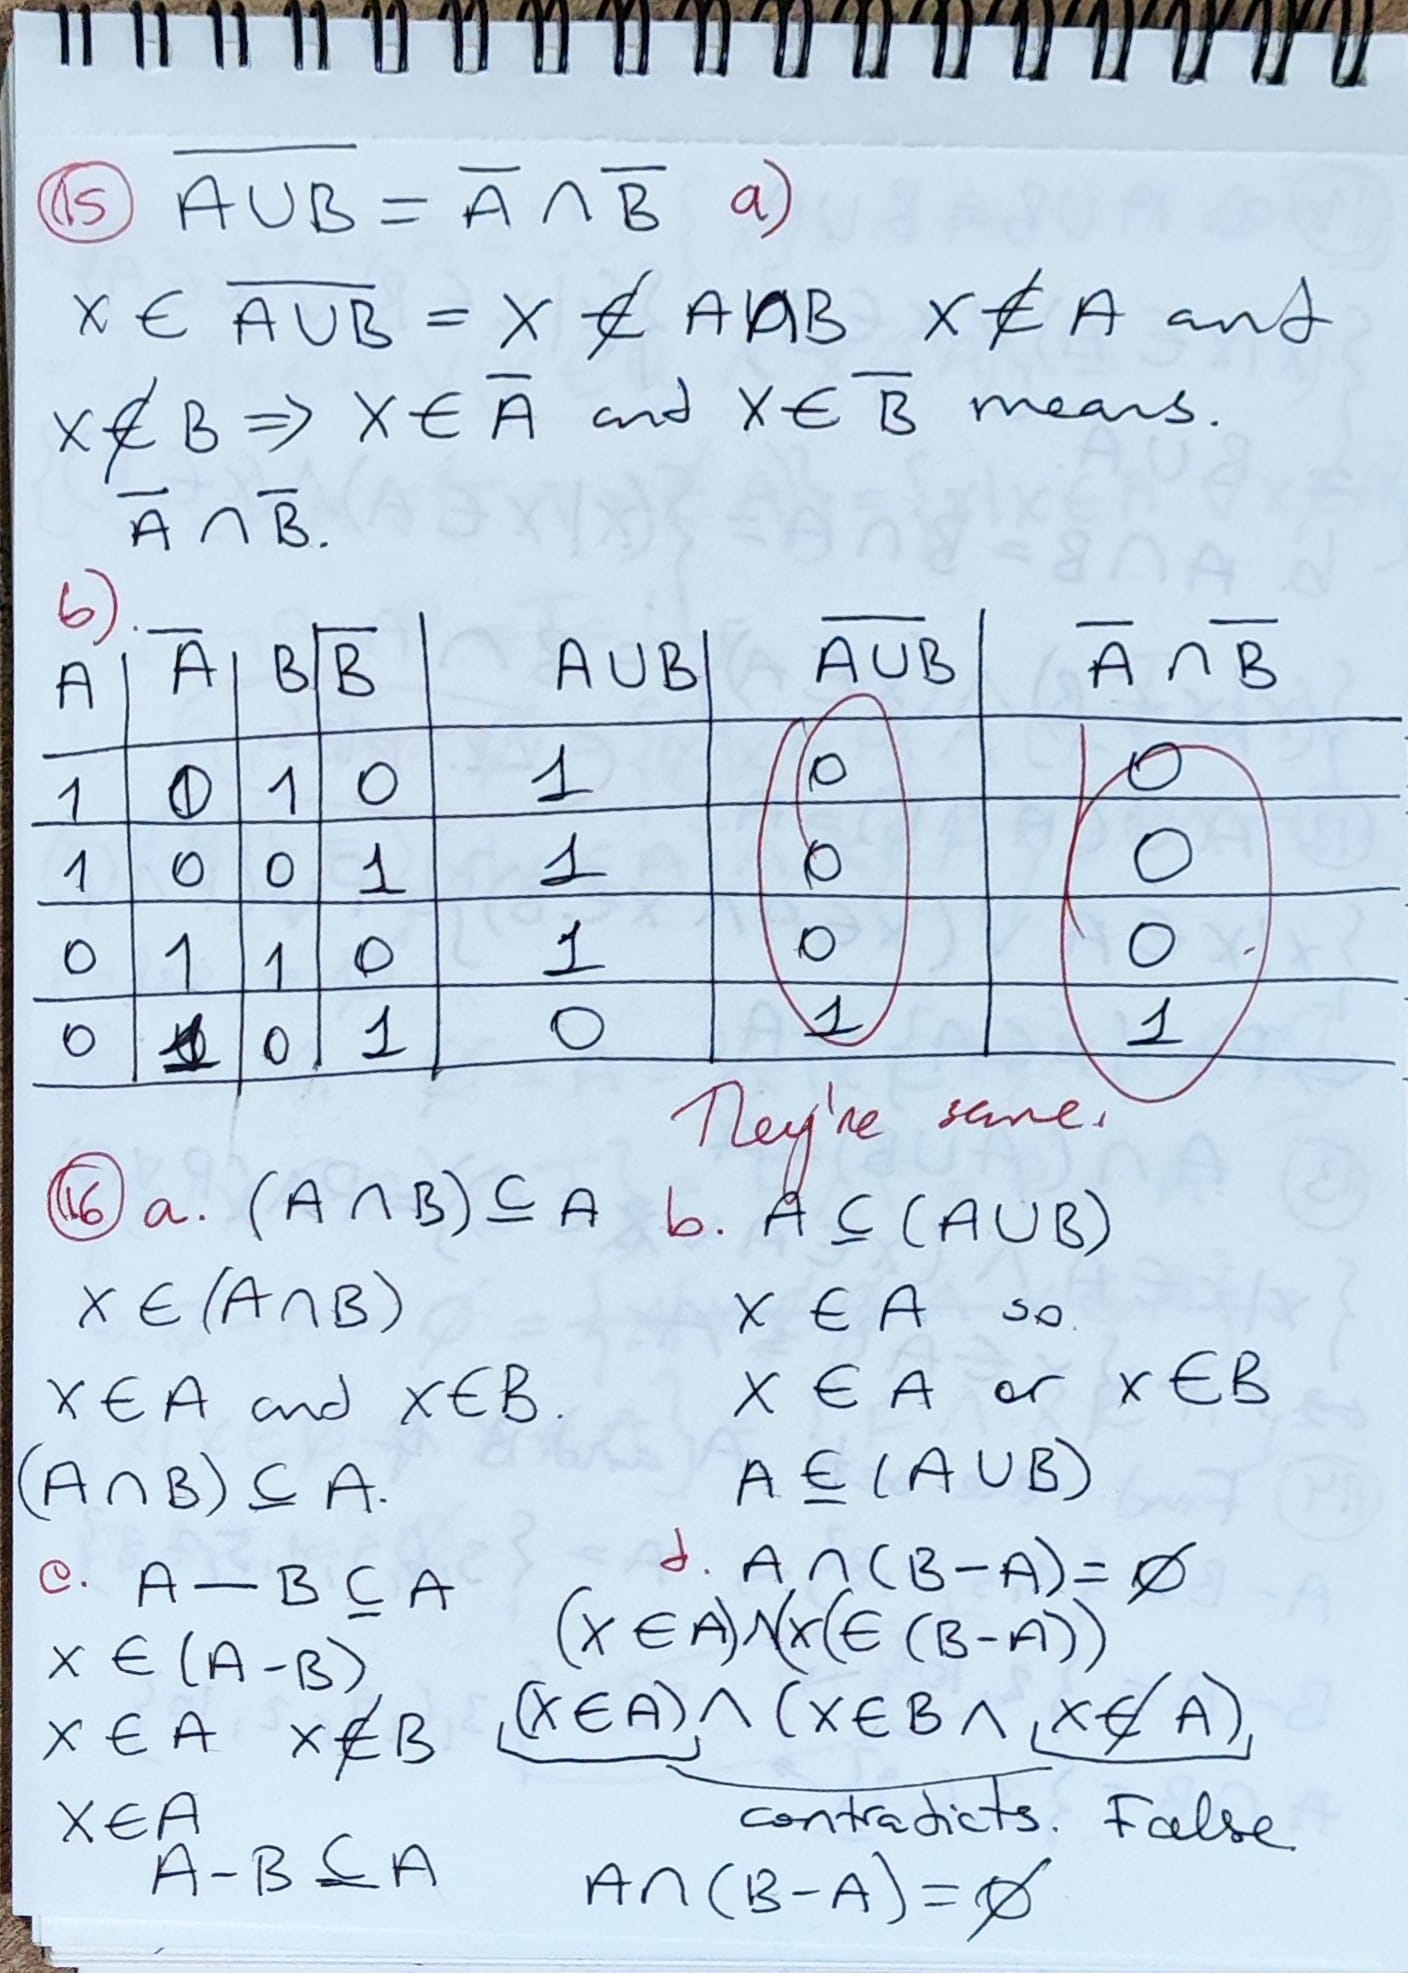 15 A̅∪̅B̅ = A̅ ∩ B̅ a)
x ∈ A̅∪̅B̅ = x ∉ A∩B x ∉ A and
x ∉ B ⇒ x ∈ A̅ and x ∈ B̅ means.
A̅ ∩ B̅.
b).
A | A̅ | B | B̅ | A ∪ B | A̅∪̅B̅ | A̅ ∩ B̅
1 | 0 | 1 | 0 | 1 | 0 | 0
1 | 0 | 0 | 1 | 1 | 0 | 0
0 | 1 | 1 | 0 | 1 | 0 | 0
0 | 1 | 0 | 1 | 0 | 1 | 1
They're same.
16 a. (A ∩ B) ⊆ A
x ∈ (A ∩ B)
x ∈ A and x ∈ B.
(A ∩ B) ⊆ A.
b. A ⊆ (A ∪ B)
x ∈ A so
x ∈ A or x ∈ B
A ⊆ (A ∪ B)
c. A − B ⊆ A
x ∈ (A - B)
x ∈ A x ∉ B
x ∈ A
A - B ⊆ A
d. A ∩ (B − A) = ∅
(x ∈ A) ∧ (x ∈ (B − A))
(x ∈ A) ∧ (x ∈ B ∧ x ∉ A)
contradicts. False
A ∩ (B − A) = ∅